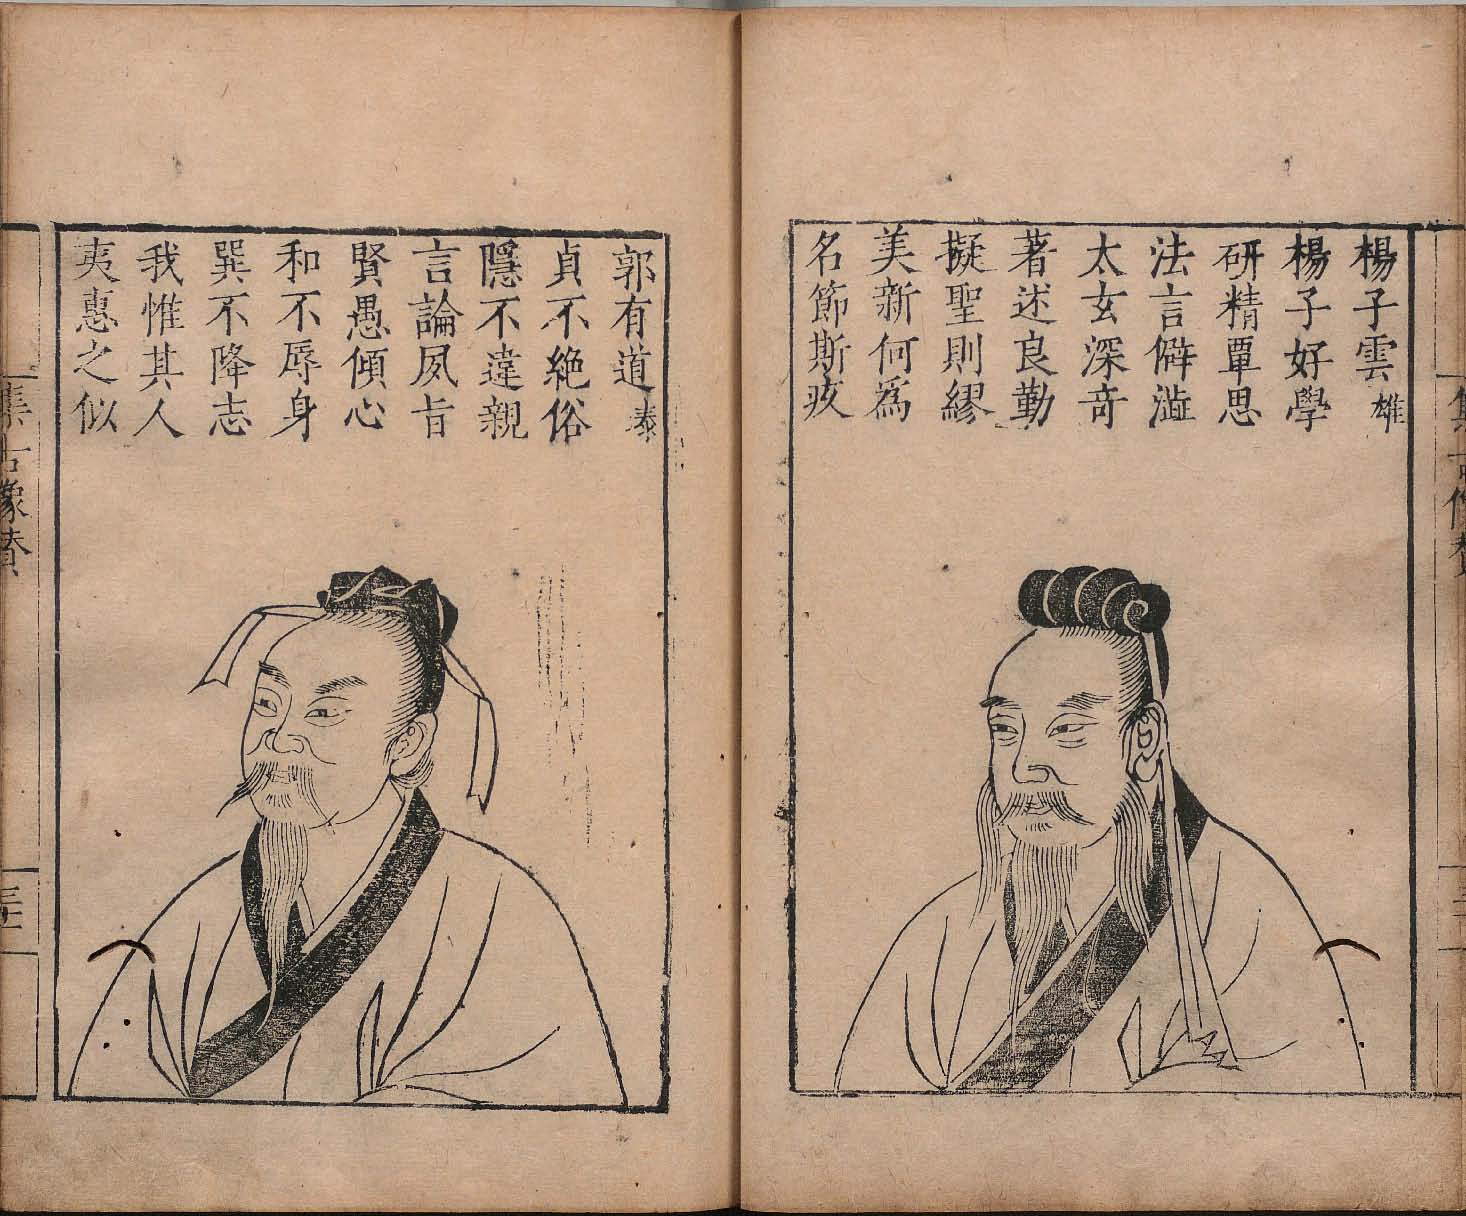 楊子雲雄
楊子好學
研精覃思
法言僻澁
太玄深竒
著述良勤
擬聖則繆
美新何爲
名節斯疚
郭有道泰
貞不絶俗
隱不違親
言論夙旨
賢愚傾心
和不辱身
巽不降志
我惟其人
夷惠之似
集古像賛